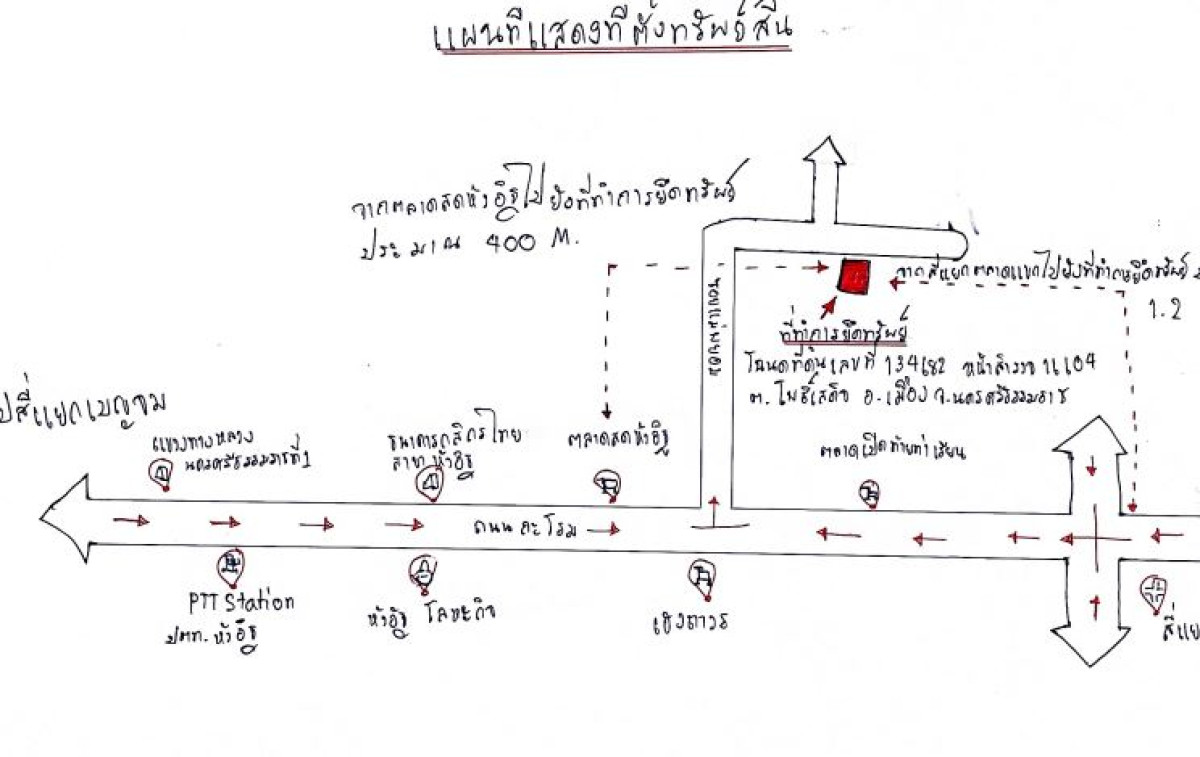 แผนที่แสดงที่ตั้งทรัพย์สิน
จากตลาดสดหัวอิฐไปยังที่ทำการยึดทรัพย์
ประมาณ 400 M.
จากสี่แยกตลาดแขกไปยังที่ทำการยึดทรัพย์
1.2
ที่ทำการยึดทรัพย์
โฉนดที่ดินเลขที่ 134682 หน้าสำรวจ 11604
ต. โพธิ์เสด็จ อ.เมือง จ.นครศรีธรรมราช
ปสี่แยกเบญจม
แขวงทางหลวง
นครศรีธรรมราชที่1
ธนาคารกสิกรไทย
สาขา หัวอิฐ
ตลาดสดหัวอิฐ
ตลาดเปิดท้ายท่าเรียน
ถนน กะโรม
PTT Station
ปตท. หัวอิฐ
หัวอิฐ โลหะกิจ
เฮงถาวร
สี่แย